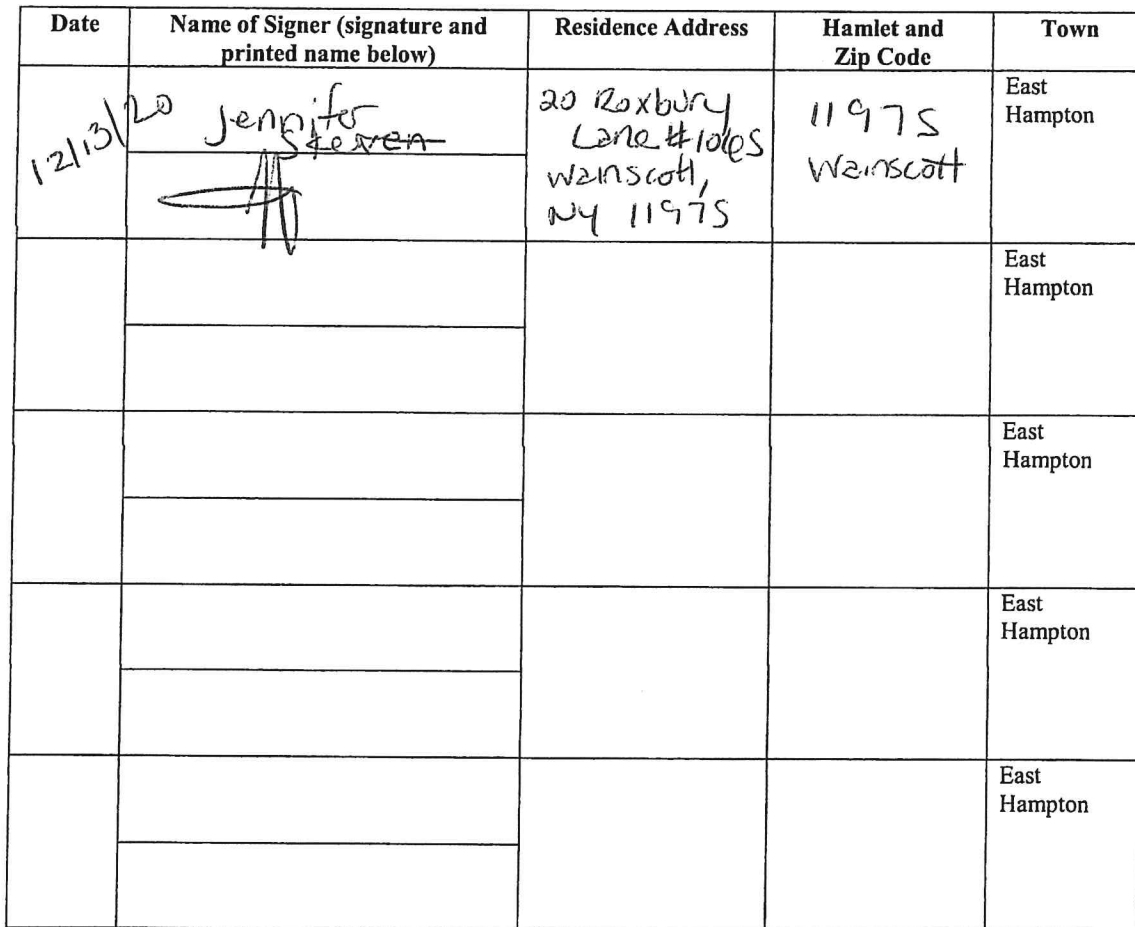 Date
Name of Signer (signature and
printed name below)
Residence Address
Hamlet and
Zip Code
Town
12/13/20
Jennifer
20 Roxbury
Lane
Wainscott,
NY 11975
11975
Wainscott
East
Hampton
East
Hampton
East
Hampton
East
Hampton
East
Hampton